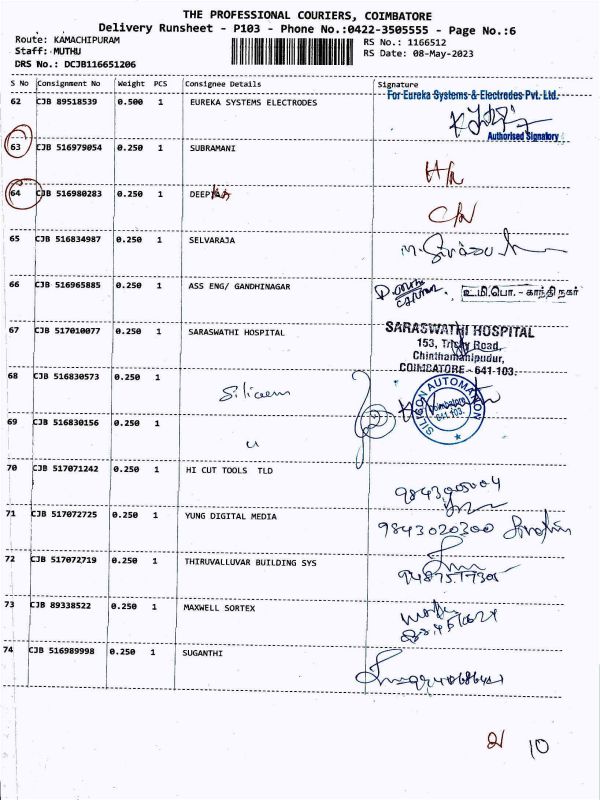 THE PROFESSIONAL COURIERS, COIMBATORE
Delivery Runsheet - P103 - Phone No.:0422-3505555 - Page No.:6
Route: KAMACHIPURAM
RS No.: 1166512
Staff: MUTHU
RS Date: 08-May-2023
DRS No.: DCJB116651206
S No Consignment No Weight PCS Consignee Details Signature
For Eureka Systems & Electrodes Pvt. Ltd.
62 CJB 89518539 0.500 1 EUREKA SYSTEMS ELECTRODES
Authorised Signatory
63 CJB 516979054 0.250 1 SUBRAMANI
64 CJB 516980283 0.250 1
65 CJB 516834987 0.250 1 SELVARAJA
66 CJB 516965885 0.250 1 ASS ENG/ GANDHINAGAR
உ.மி.பொ. - காந்தி நகர்
67 CJB 517010077 0.250 1 SARASWATHI HOSPITAL
SARASWATHI HOSPITAL
153, Trichy Road,
Chinthamanipudur,
COIMBATORE - 641 103.
68 CJB 516830573 0.250 1
SILICON AUTOMATION
Coimbatore
641 103.
69 CJB 516830156 0.250 1
70 CJB 517071242 0.250 1 HI CUT TOOLS TLD
71 CJB 517072725 0.250 1 YUNG DIGITAL MEDIA
9843020300
72 CJB 517072719 0.250 1 THIRUVALLUVAR BUILDING SYS
73 CJB 89338522 0.250 1 MAXWELL SORTEX
74 CJB 516989998 0.250 1 SUGANTHI
10